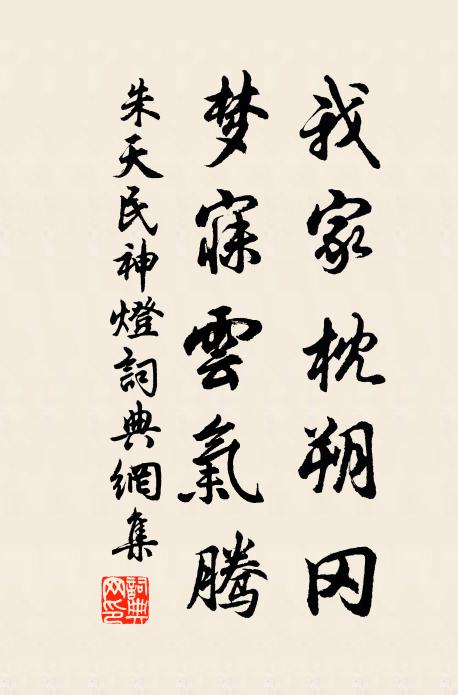 我家枕朔冈
梦寐雲氣腾
朱天民神燈詞典網集
詞典网印